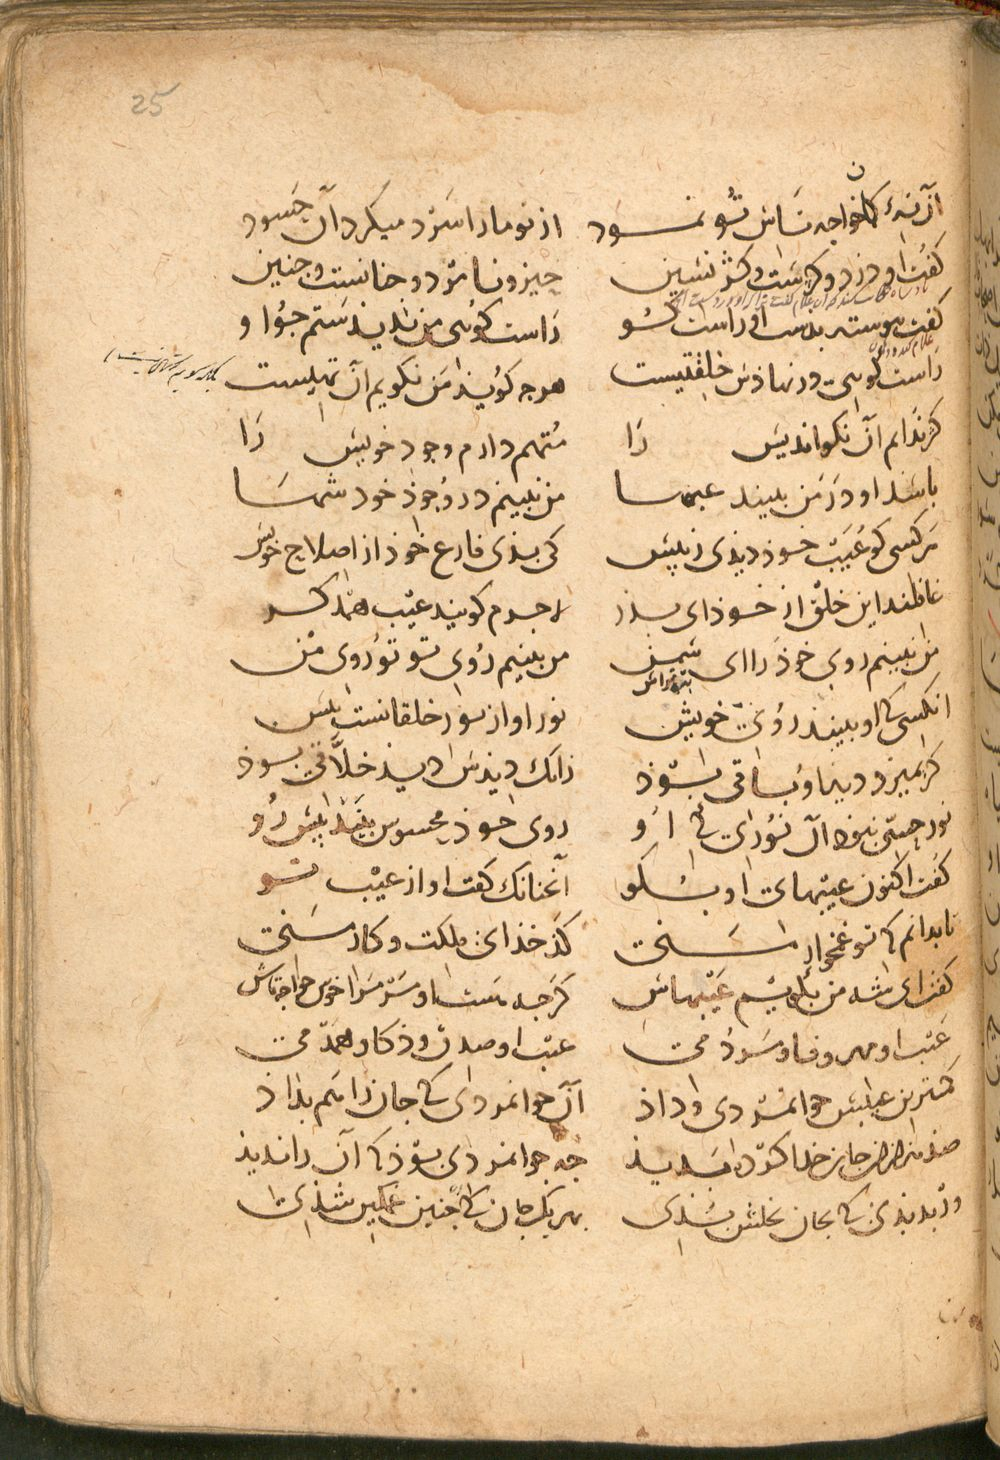 25
آن نهٔ کان خواجه تاش تو نمود از تو مارا سرد میکرد آن حسود
کفت او دزد و کژست و کژ نشین حیز و نامرد و خنانست و جنین
کفت پیوسته بدست او راست کو راست کوئی من ندیدستم جو او
راست کویی در نهادش خلقتیست هرجه کوید من نکویم آن تهیست
کژ ندانم آن نکو اندیش را متهم دارم وجود خویش را
باشد او در من ببیند عیبها من نبینم در وجود خود شها
هر کسی کو عیب خود دیدی ز پیش کی بدی فارغ خود از اصلاح خویش
غافلند این خلق از خود ای پدر لاجرم کویند عیب همدکر
من نبینم روی خود را ای شمن من ببینم روی تو تو روی من
انکسی کاو ببیند روی خویش نور او از نور خلقانست بیش
کر بمیرد دید او باقی بود زانک دیدش دید خلاقی بود
نور حسی نبود آن نوری که او روی خود محسوس بیند پیش رو
کفت اکنون عیبهای او بکو آنچنانک کفت او از عیب تو
تا بدانم که تو غمخوار منی کدخدای ملکت و کار منی
کفت ای شه من بکویم عیبهاش کرجه هست او مر مرا خوش خواجه تاش
عیب او مهر و وفا و مردمی عیب او صدق و ذکا و همدمی
کمترین عیبش جوانمردی و داد آن جوانمردی که جان را هم بداد
صد هزاران جان خدا کرده بدید جه جوانمردی بود کان را ندید
ور بدیدی کی بجان بخلش بدی بهر یک جان کی جنین غمکین شدی